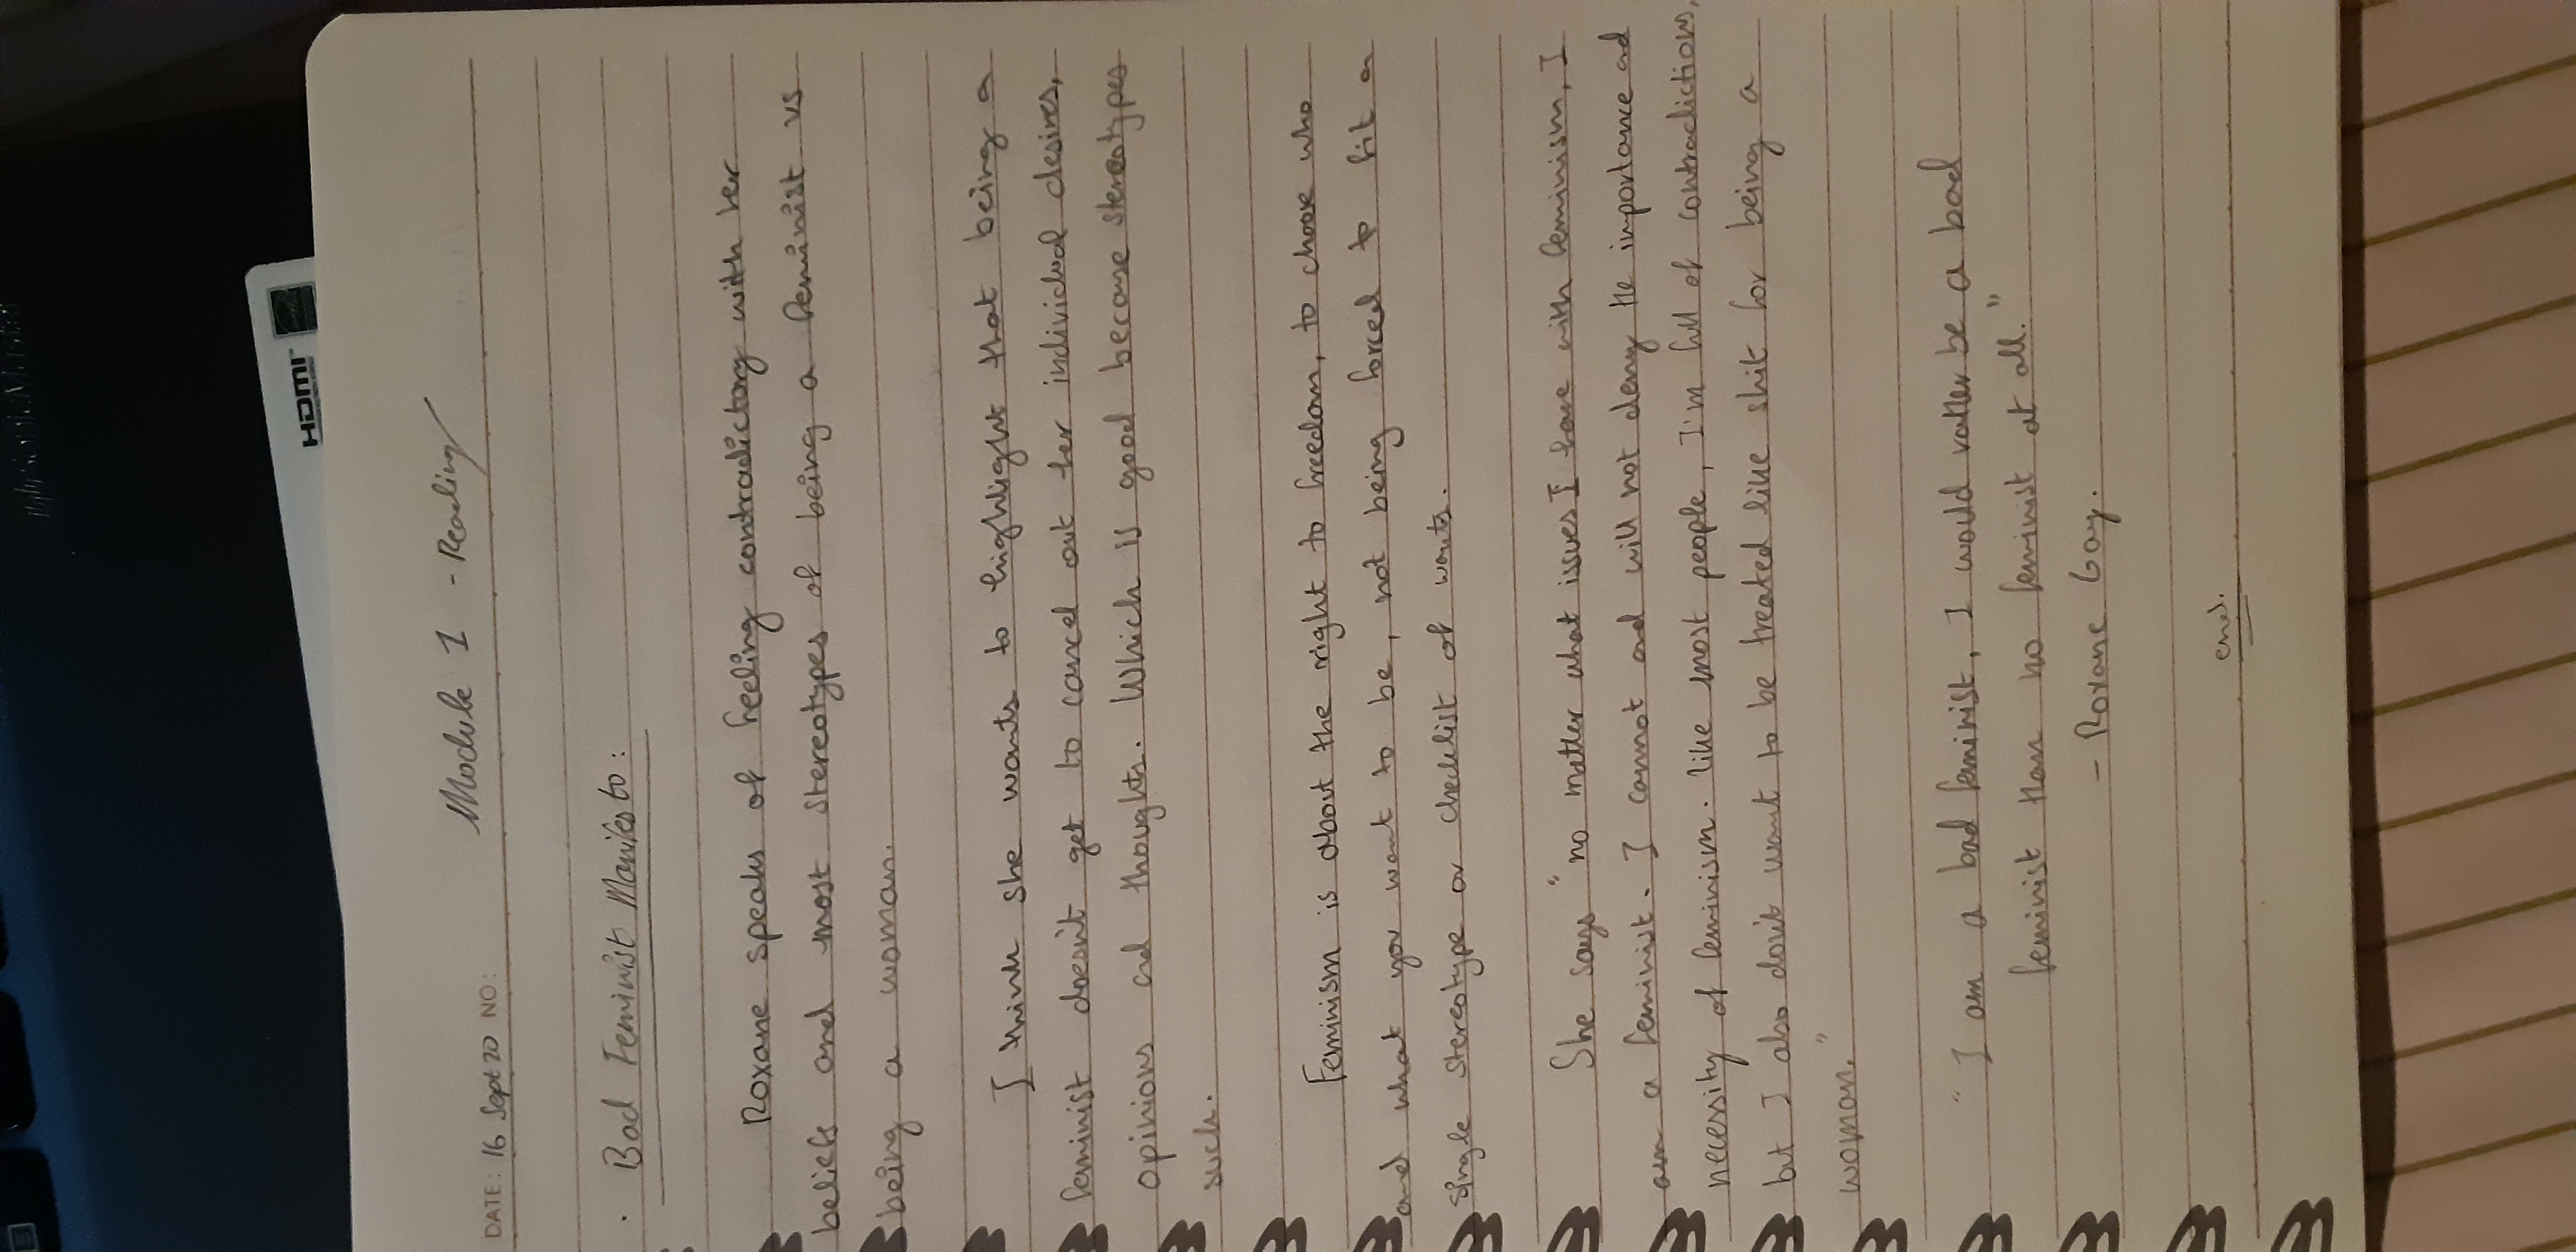 HDMI
Module 1 - Reading
DATE: 16 Sept 20 NO:
· Bad Feminist Manifesto:
Roxane speaks of feeling contradictory with her
beliefs and most stereotypes of being a feminist vs
being a woman.
I think she wants to highlight that being a
feminist doesn't get to cancel out her individual desires,
opinions and thoughts. Which is good because stereotypes
suck.
Feminism is about the right to freedom, to choose who
and what you want to be, not being forced to fit a
single stereotype or checklist of wants.
She says "no matter what issues I have with feminism, I
am a feminist. I cannot and will not deny the importance and
necessity of feminism. like most people, I'm full of contradictions,
but I also don't want to be treated like shit for being a
woman."
"I am a bad feminist, I would rather be a bad
feminist than no feminist at all."
- Roxane Gay.
end.